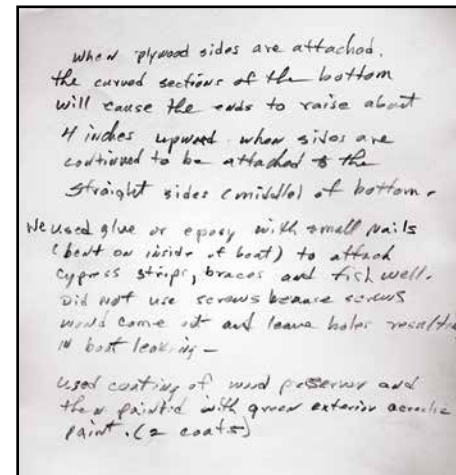 when plywood sides are attached.
the curved sections of the bottom
will cause the ends to raise about
4 inches upward when sides are
continued to be attached to the
straight sides (middle) of bottom.
We used glue or epoxy with small nails
(bent on inside of boat) to attach
cypress strips, braces and fish well.
Did not use screws because screws
would come out and leave holes resulting
in boat leaking -
used coating of wood preserver and
then painted with green exterior acrylic
paint. (2 coats)